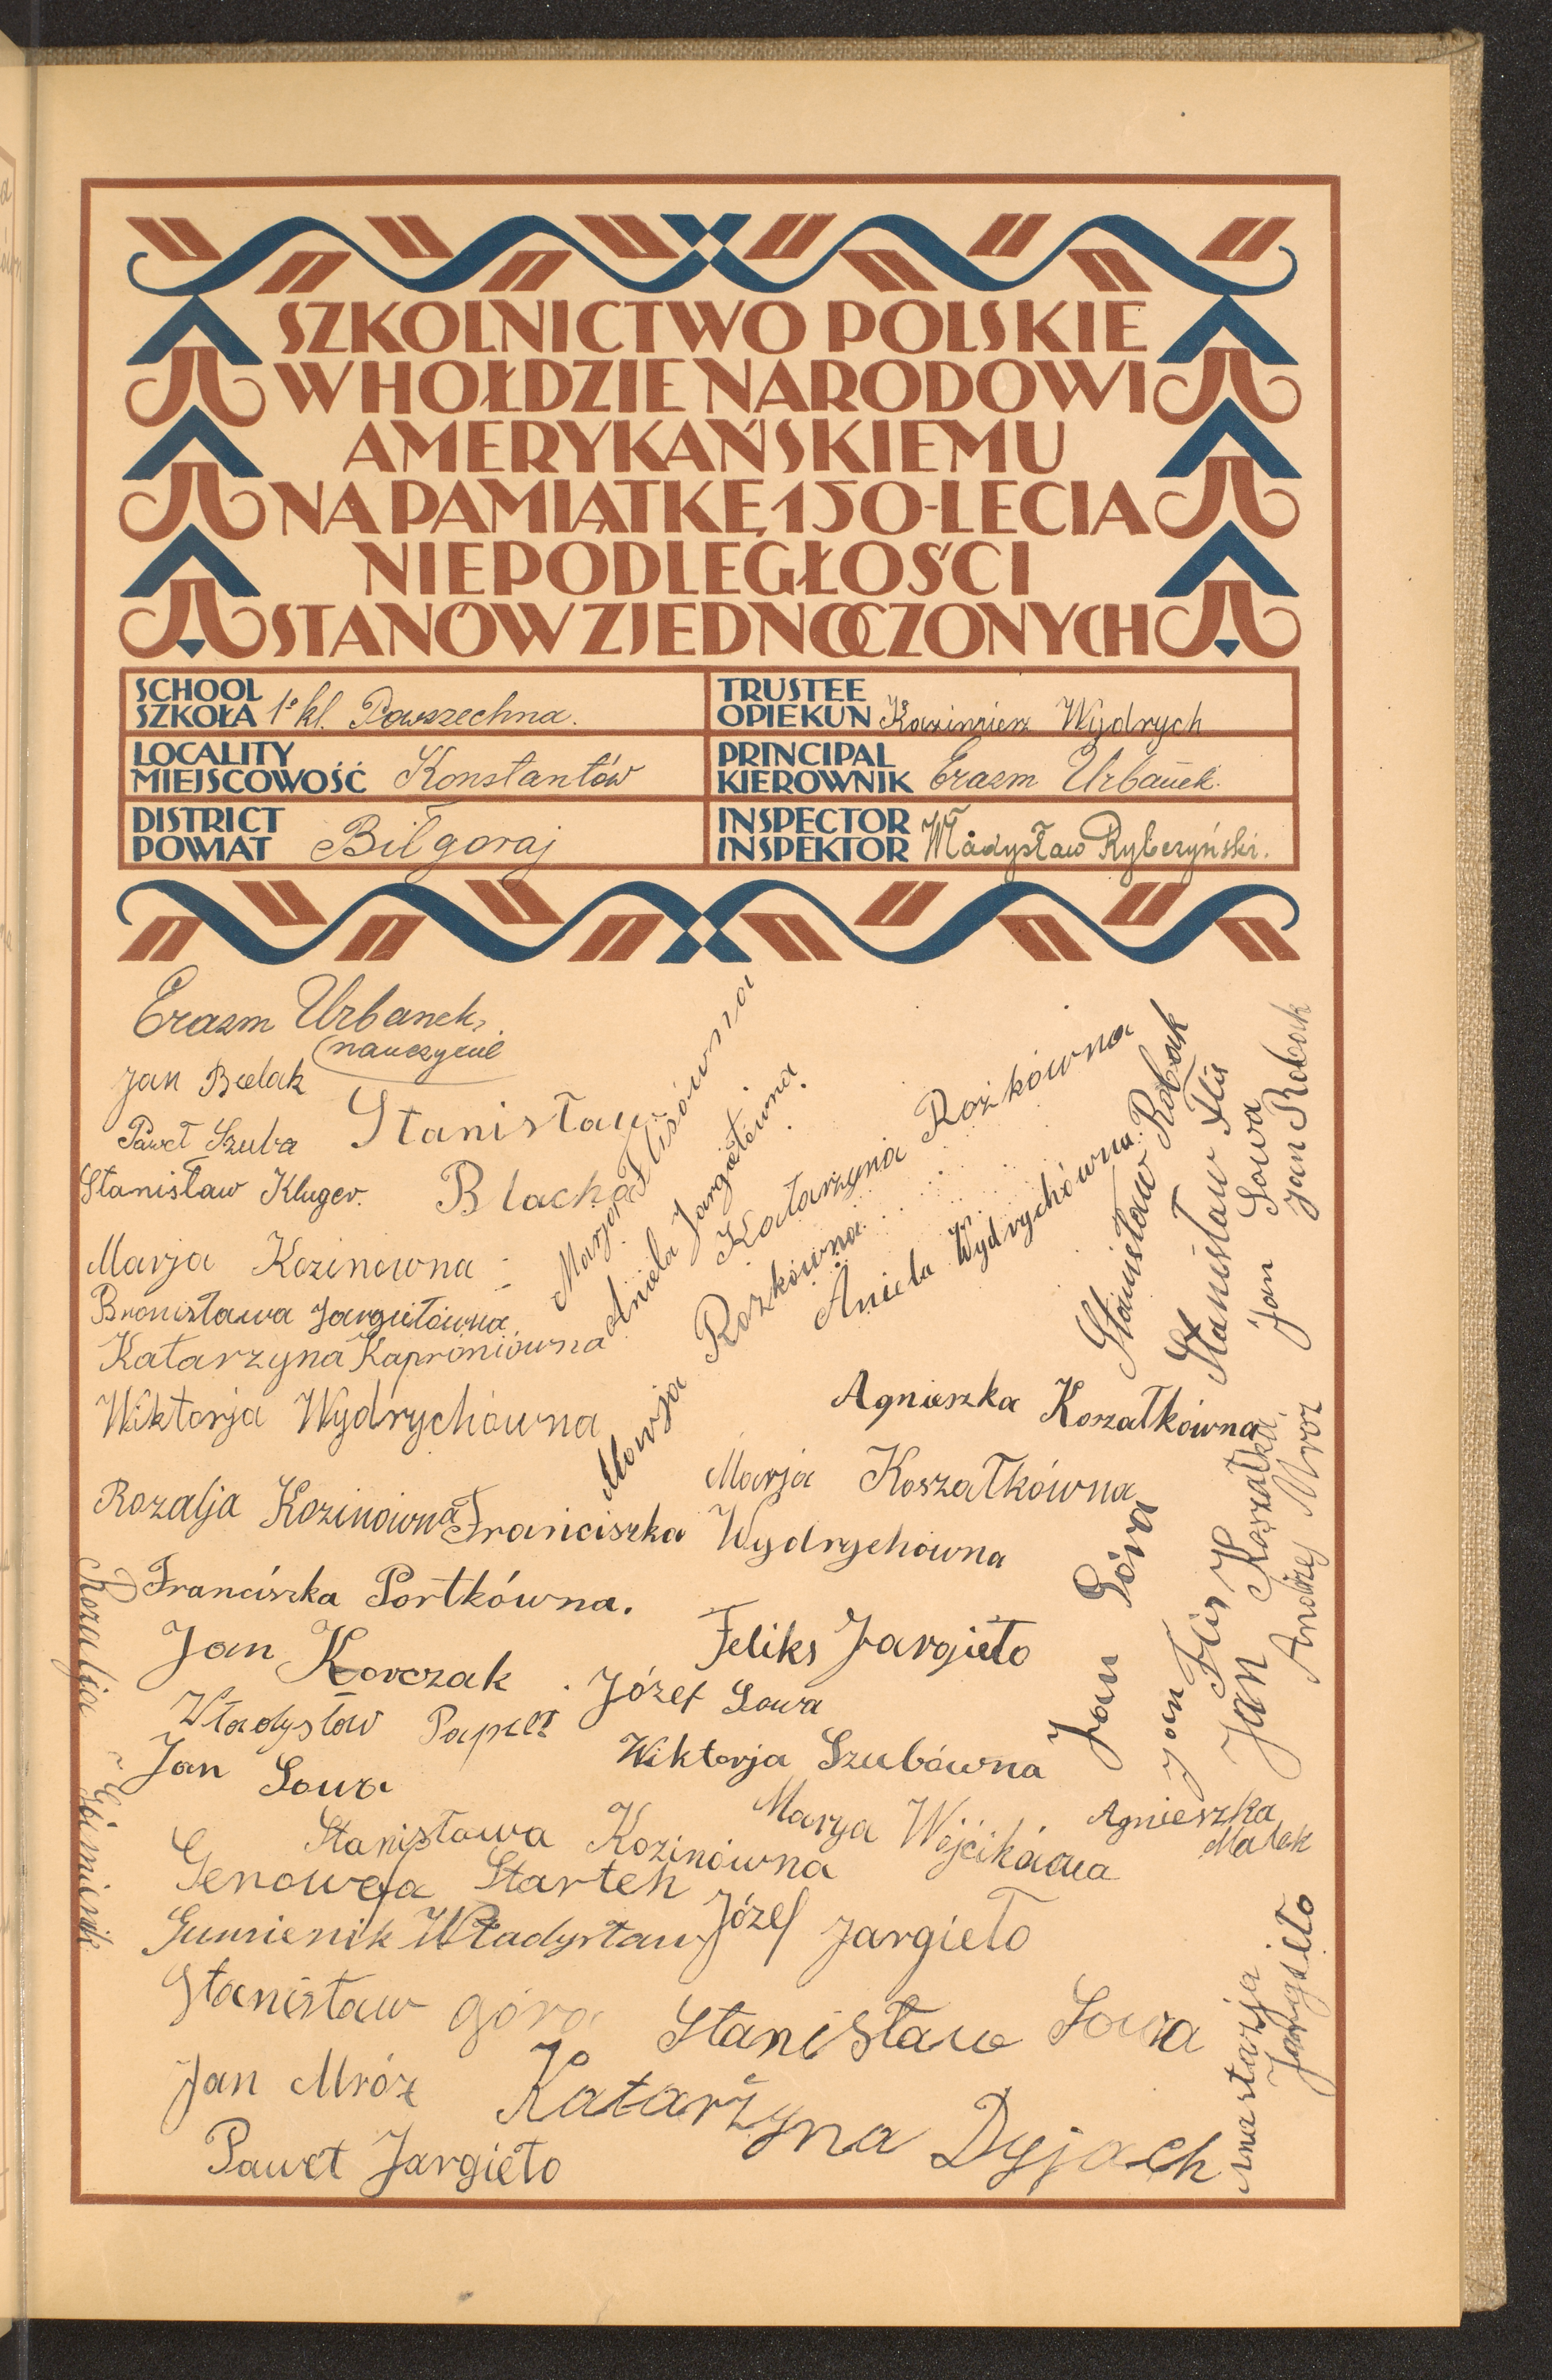 SZKOLNICTWO POLSKIE
W HOŁDZIE NARODOWI
AMERYKAŃSKIEMU
NA PAMIĄTKĘ 150-LECIA
NIEPODLEGŁOŚCI
STANÓW ZJEDNOCZONYCH
SCHOOL
SZKOŁA 1º kl. Powszechna.
TRUSTEE
OPIEKUN Kazimierz Wydrych
LOCALITY
MIEJSCOWOŚĆ Konstantów
PRINCIPAL
KIEROWNIK Erazm Urbanek.
DISTRICT
POWIAT Biłgoraj
INSPECTOR
INSPEKTOR Władysław Rybczyński.
Erazm Urbanek,
nauczyciel
Jan Bielak
Paweł Szuba
Stanisław
Blacha
Stanisław Kluger.
Marja Kozinowna
Bronisława Jargiełówna
Katarzyna Kaproniówna
Wiktorja Wydrychówna
Rozalja Kozinówna
Marja Flisówna
Aniela Jargiełówna.
Katarzyna Rożkówna
Marja Rozkówna
Aniela Wydrychówna.
Stanisław Robak
Stanisław Flis
Jan Sowa
Jan Robak
Agnieszka Koszałkówna
Marja Koszałkówna
Franciszka Wydrychówna
Franciszka Portkówna.
Jan Korczak
Feliks Jargieło
Józef Sowa
Władysław
Jan Sowa
Wiktorja Szubówna
Jan Góra
Jan Flis
Jan Koszałka.
Andrzej Mroz
Stanisława Kozinówna
Marya
Agnieszka
Małek
Genowefa Startek
Gumienik Władysław
Józef Jargieło
Rozalja
Stanisław góra
Stanisław Sowa
Jan Mróz
Katarzyna Dyjach
Paweł Jargieło
Anastazja
Jargieło